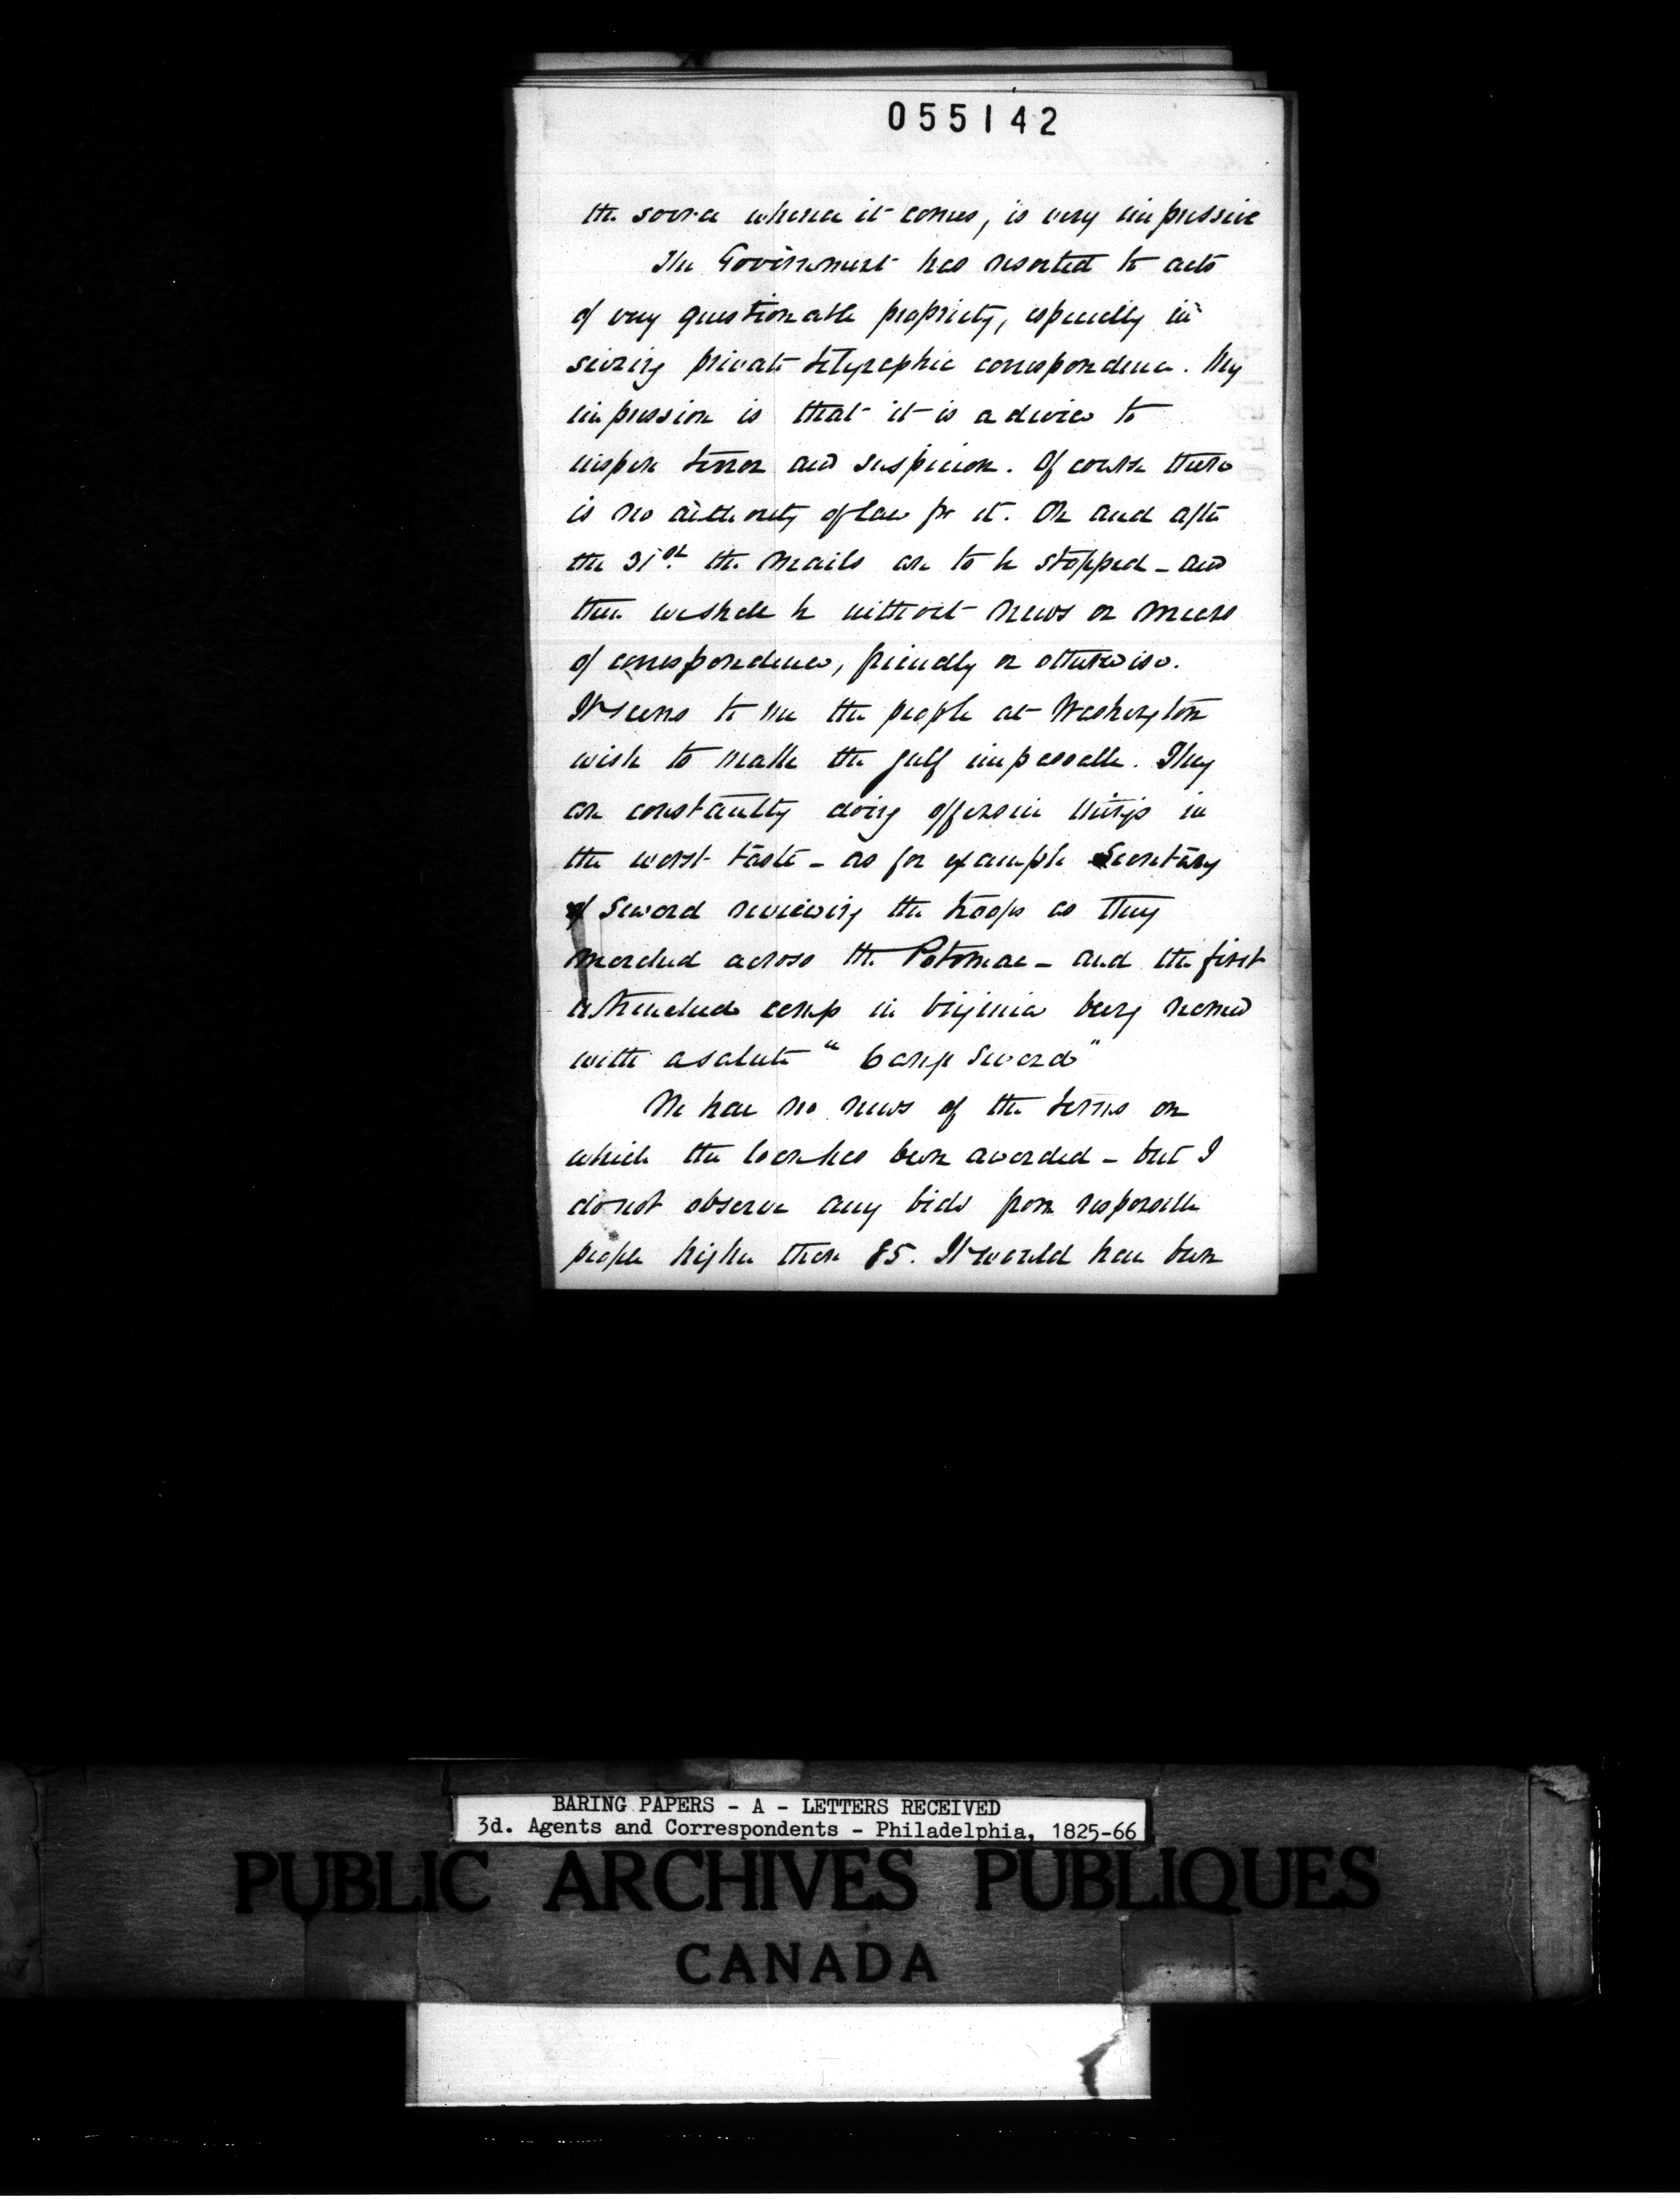 055142
the source whence it comes, is very impressive
The Government has resorted to acts
of very questionable propriety, especially in
seizing private telegraphic correspondence. My
impression is that it is a device to
inspire terror and suspicion. Of course there
is no authority of law for it. On and after
the 31st. the mails are to be stopped - and
then we shall be without news or means
of correspondence, friendly or otherwise.
It seems to me the people at Washington
wish to make the gulf impassable. They
are constantly doing offensive things in
the worst taste - as for example Secretary
Seward reviewing the troops as they
marched across the Potomac - and the first
entrenched camp in Virginia being named
with a salute " Camp Seward "
We have no news of the terms on
which the loan has been awarded - but I
do not observe any bids from responsible
people higher than 85. It would have been
BARING PAPERS - A - LETTERS RECEIVED
3d. Agents and Correspondents - Philadelphia, 1825-66
PUBLIC ARCHIVES PUBLIQUES
CANADA